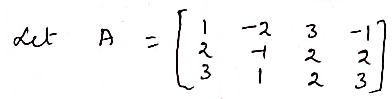 Let A = [1 -2 3 -1
2 -1 2 2
3 1 2 3]